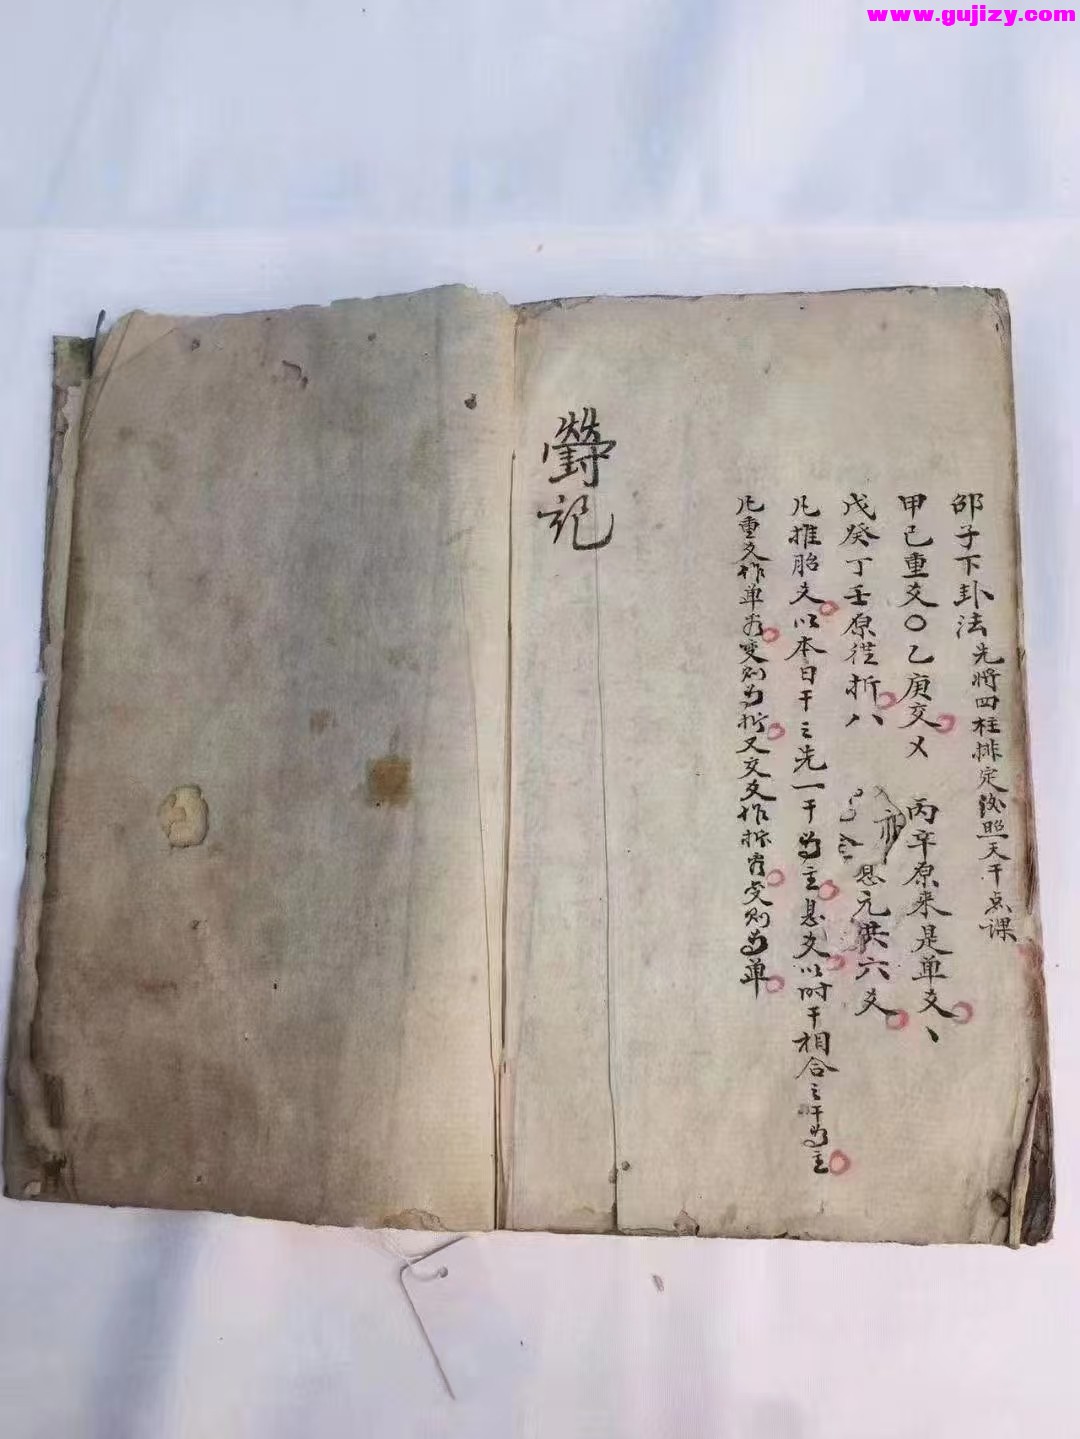 www.gujizy.com
邵子下卦法先將四柱排定後照天干点課
甲己重爻〇乙庚交乂 丙辛原来是单爻丶
戊癸丁壬原從折八 息元共六爻
凡推胎爻以本日干之先一干为主息爻以时干相合之干为主
凡重爻作单看变则为折又交爻作拆看变则为单
記